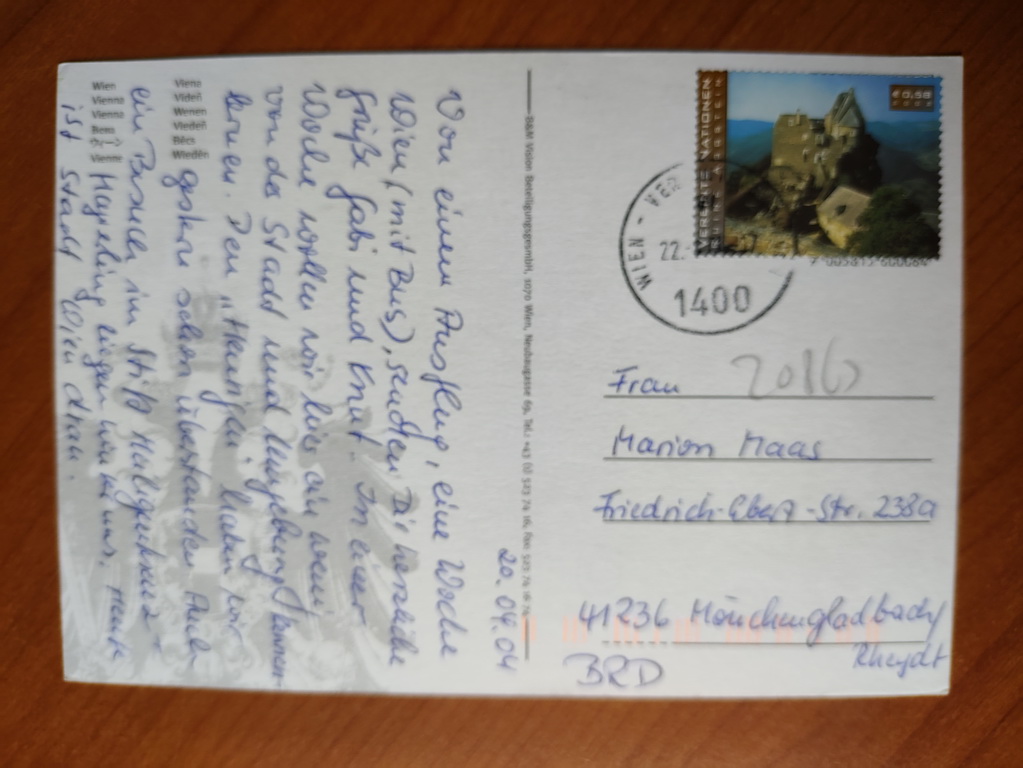 20.04.04
Von einem Ausflug, eine Woche
Wien (mit Bus), senden Dir herzliche
Grüße Gabi und Knut. In einer
Woche wollen wir hier ein wenig
von der Stadt und Umgebung kennen-
lernen. Den „Heurigen" haben wir
gestern schon überstanden. Auch
ein Besuch im Stift Heiligenkreuz +
Mayerling liegen hinter uns. Heute
ist Stadt Wien dran.
Wien
Vienna
Vienna
Vienne
Viena
Vídeň
Wenen
Viedeň
Bécs
Wiedeń
B&M Vision BeteiligungsgesmbH, 1070 Wien, Neubaugasse 69, Tel.: +43 (1) 523 74 16, Fax: 523 74 16
VEREINTE NATIONEN
AGGSTEIN
€ 0,58
WIEN - VER
22.
1400
Frau
2016
Marion Maas
Friedrich-Ebert-Str. 238a
41236 Mönchengladbach/
Rheydt
BRD